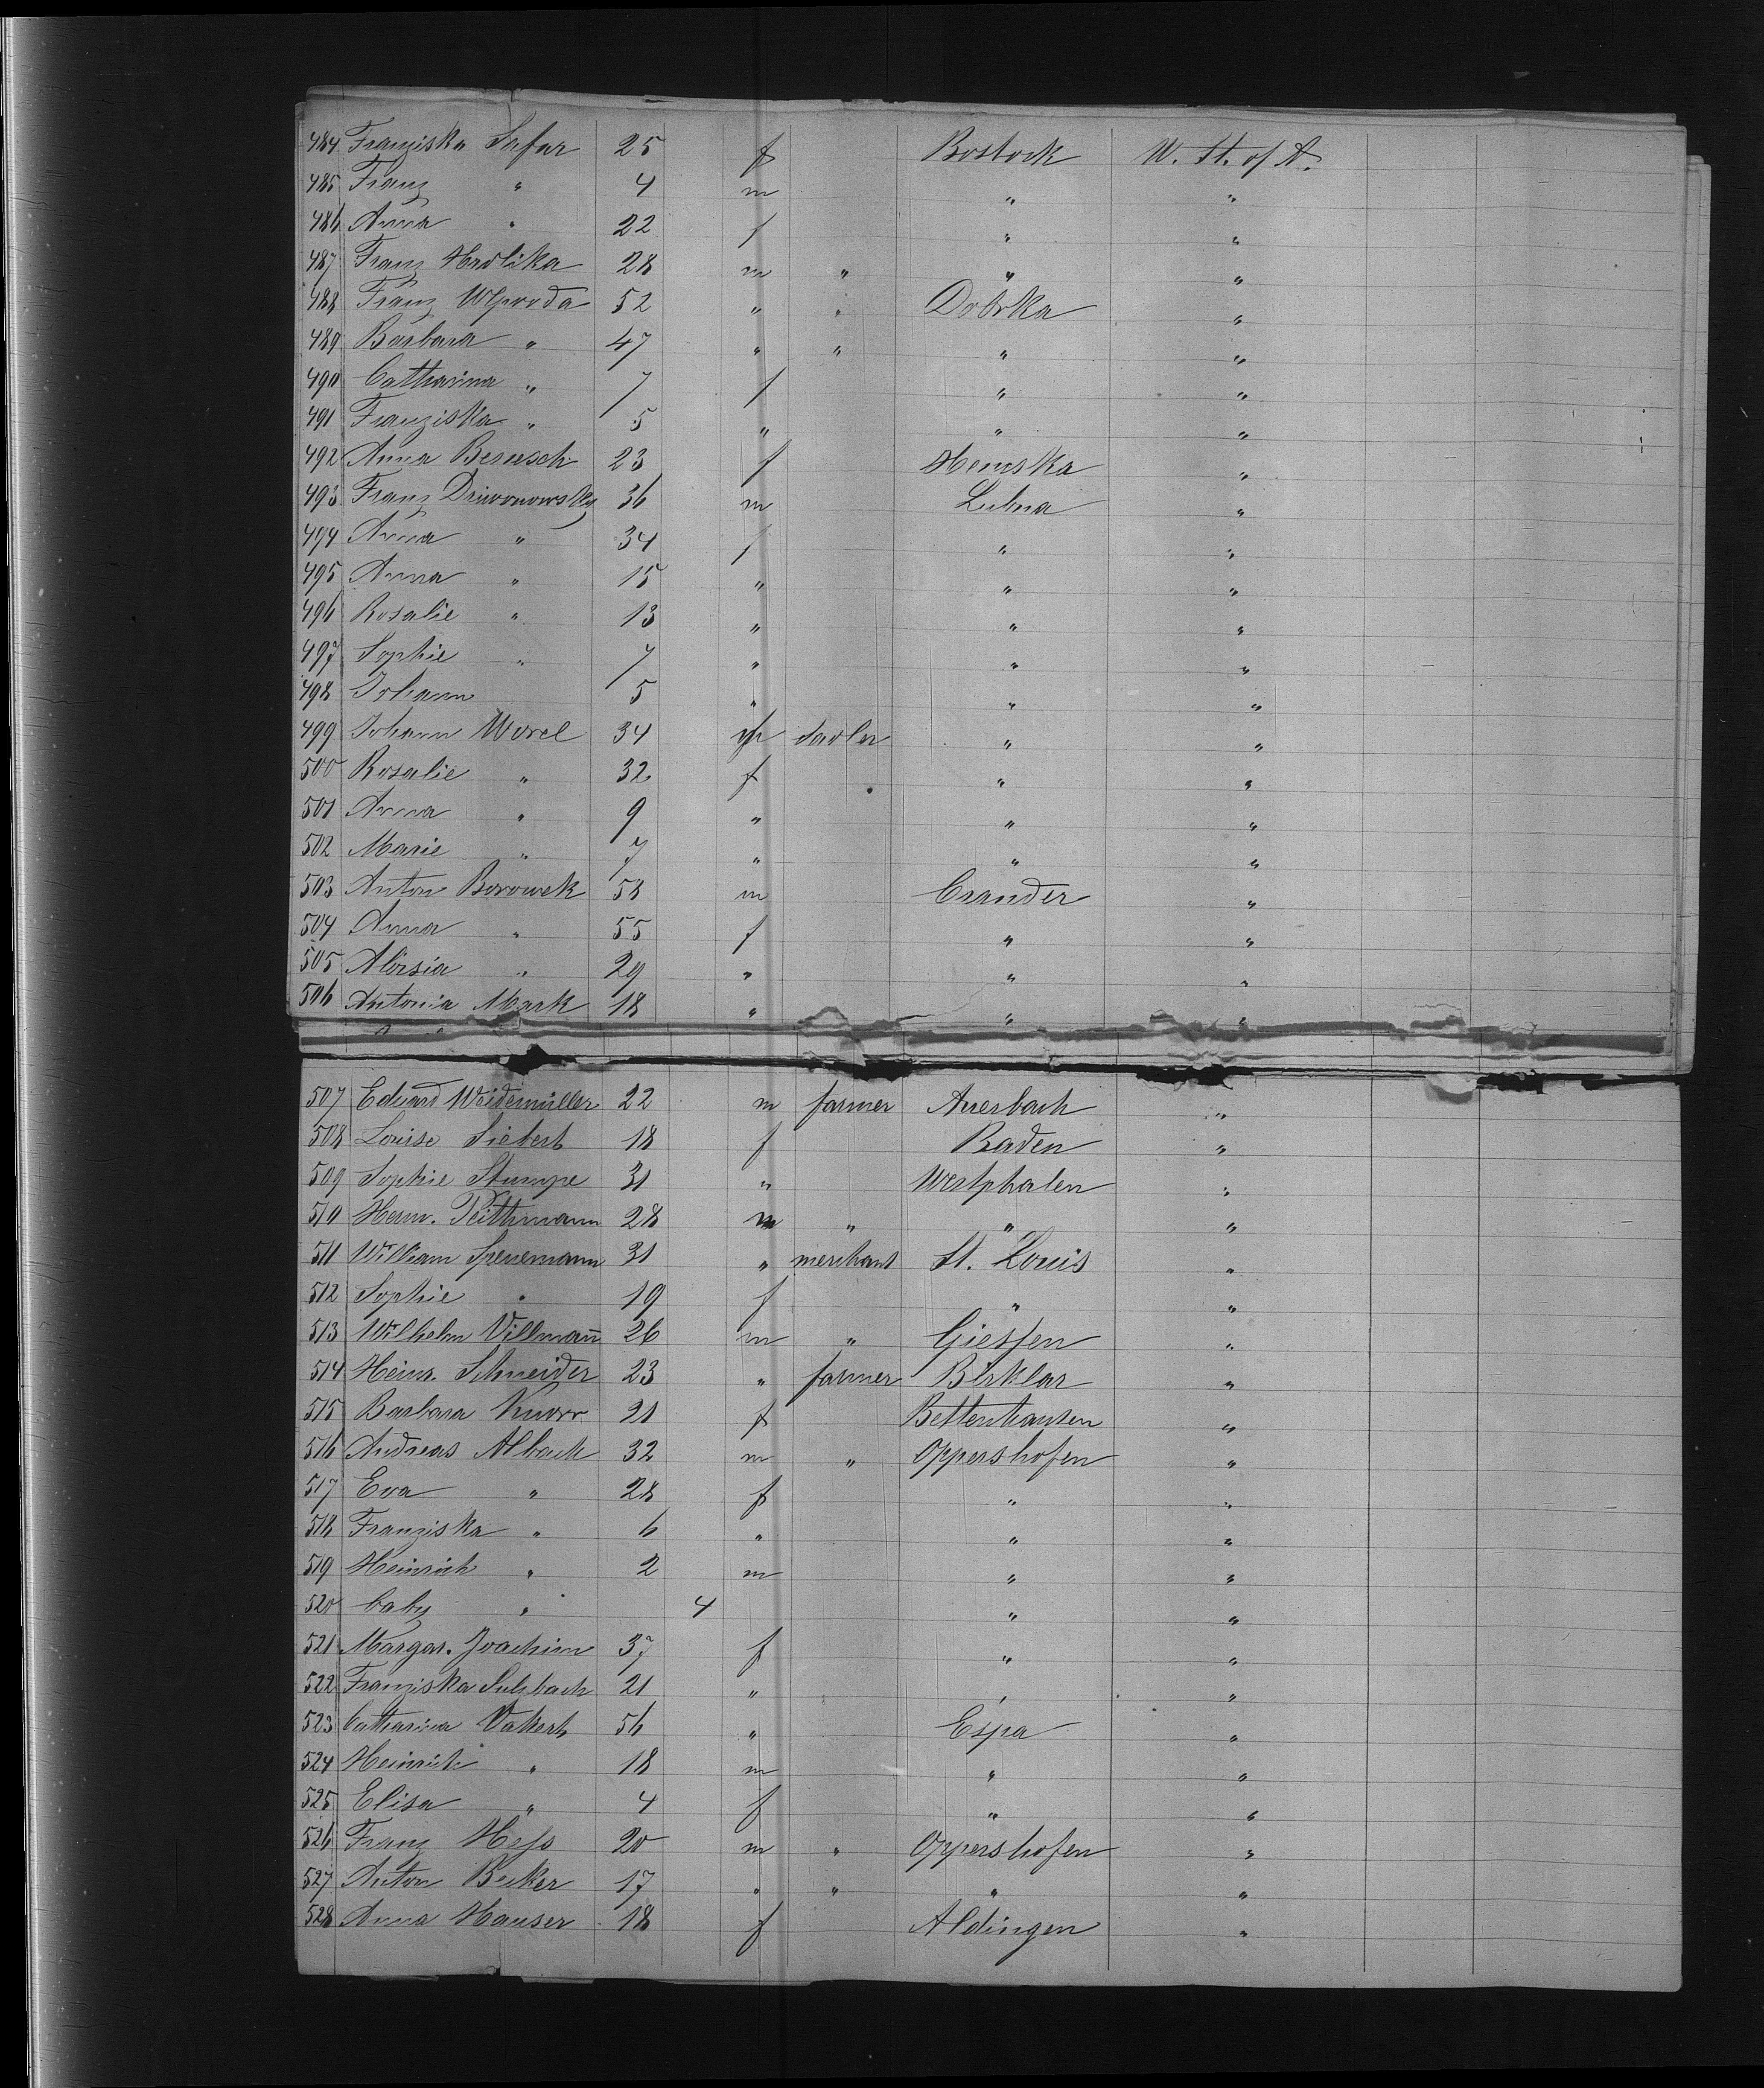 484 Franziska Safar 25 f Bostock W. St. of A.
485 Franz " 4 m " "
486 Anna " 22 f " "
487 Franz Hrdlika 28 m " " "
488 Franz 52 " " Dobrka "
489 Barbara " 47 " " " "
490 Catharina " 7 f " "
491 Franziska " 5 " " "
492 Anna Benesch 23 f "
493 Franz 36 m Luhna "
494 Anna " 34 f " "
495 Anna " 15 " " "
496 Rosalie " 13 " " "
497 Sophie " 7 " " "
498 Johann 5 " " "
499 Johann Worel 34 m " "
500 Rosalie " 32 f " "
501 Anna " 9 " " "
502 Marie " 7 " " "
503 Anton Borowek 58 m Crander "
504 Anna " 55 f " "
505 Aloisia " 29 " " "
506 Antonia Mark 18 " " "
507 Eduard Weidemüller 22 m farmer Auerbach "
508 Louise Siebert 18 f Baden "
509 Sophie Stumpe 31 " Westphalen "
510 Herm. Peithmann 28 m " " "
511 William Spenemann 31 " merchant St. Louis "
512 Sophie " 19 f " "
513 Wilhelm Villmann 26 m " Giessen "
514 Heinr. Schneider 23 " farmer Birklar "
515 Barbara Knorr 21 f Bettenhausen "
516 Andreas Alback 32 m " Oppershofen "
517 Eva " 28 f " "
518 Franziska " 6 " " "
519 Heinrich " 2 m " "
520 baby " 4 " "
521 Margar. Joachim 37 f " "
522 Franziska Sulzbach 21 " " "
523 Catharina Vakert 56 " Espa "
524 Heinrich " 18 m " "
525 Elisa " 4 f " "
526 Franz Hess 20 m " Oppershofen "
527 Anton Beker 17 " " " "
528 Anna Hauser 18 f Aldingen "